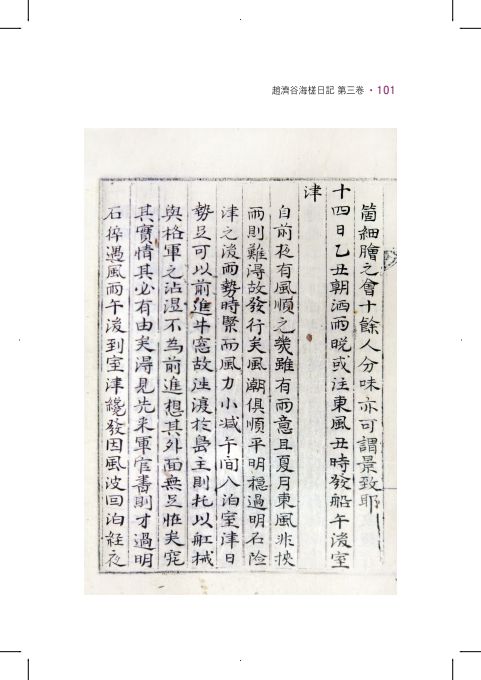 趙濟谷海槎日記 第三卷 ・101
箇細膾之會十餘人分味亦可謂景致耶
十四日乙丑朝洒雨晩或注東風丑時發船午後室
津
自前夜有風順之幾雖有雨意且夏月東風非挾
雨則難得故發行矣風潮俱順平明穩過明石險
津之後雨勢時緊而風力小减午间入泊室津日
勢足可以前進牛窓故送渡於島主則托以舡械
與格軍之沾湿不為前進想其外面無足恠矣究
其實情其必有由矣得見先来軍官書則才過明
石猝遇風雨午後到室津纔發因風波回泊経夜